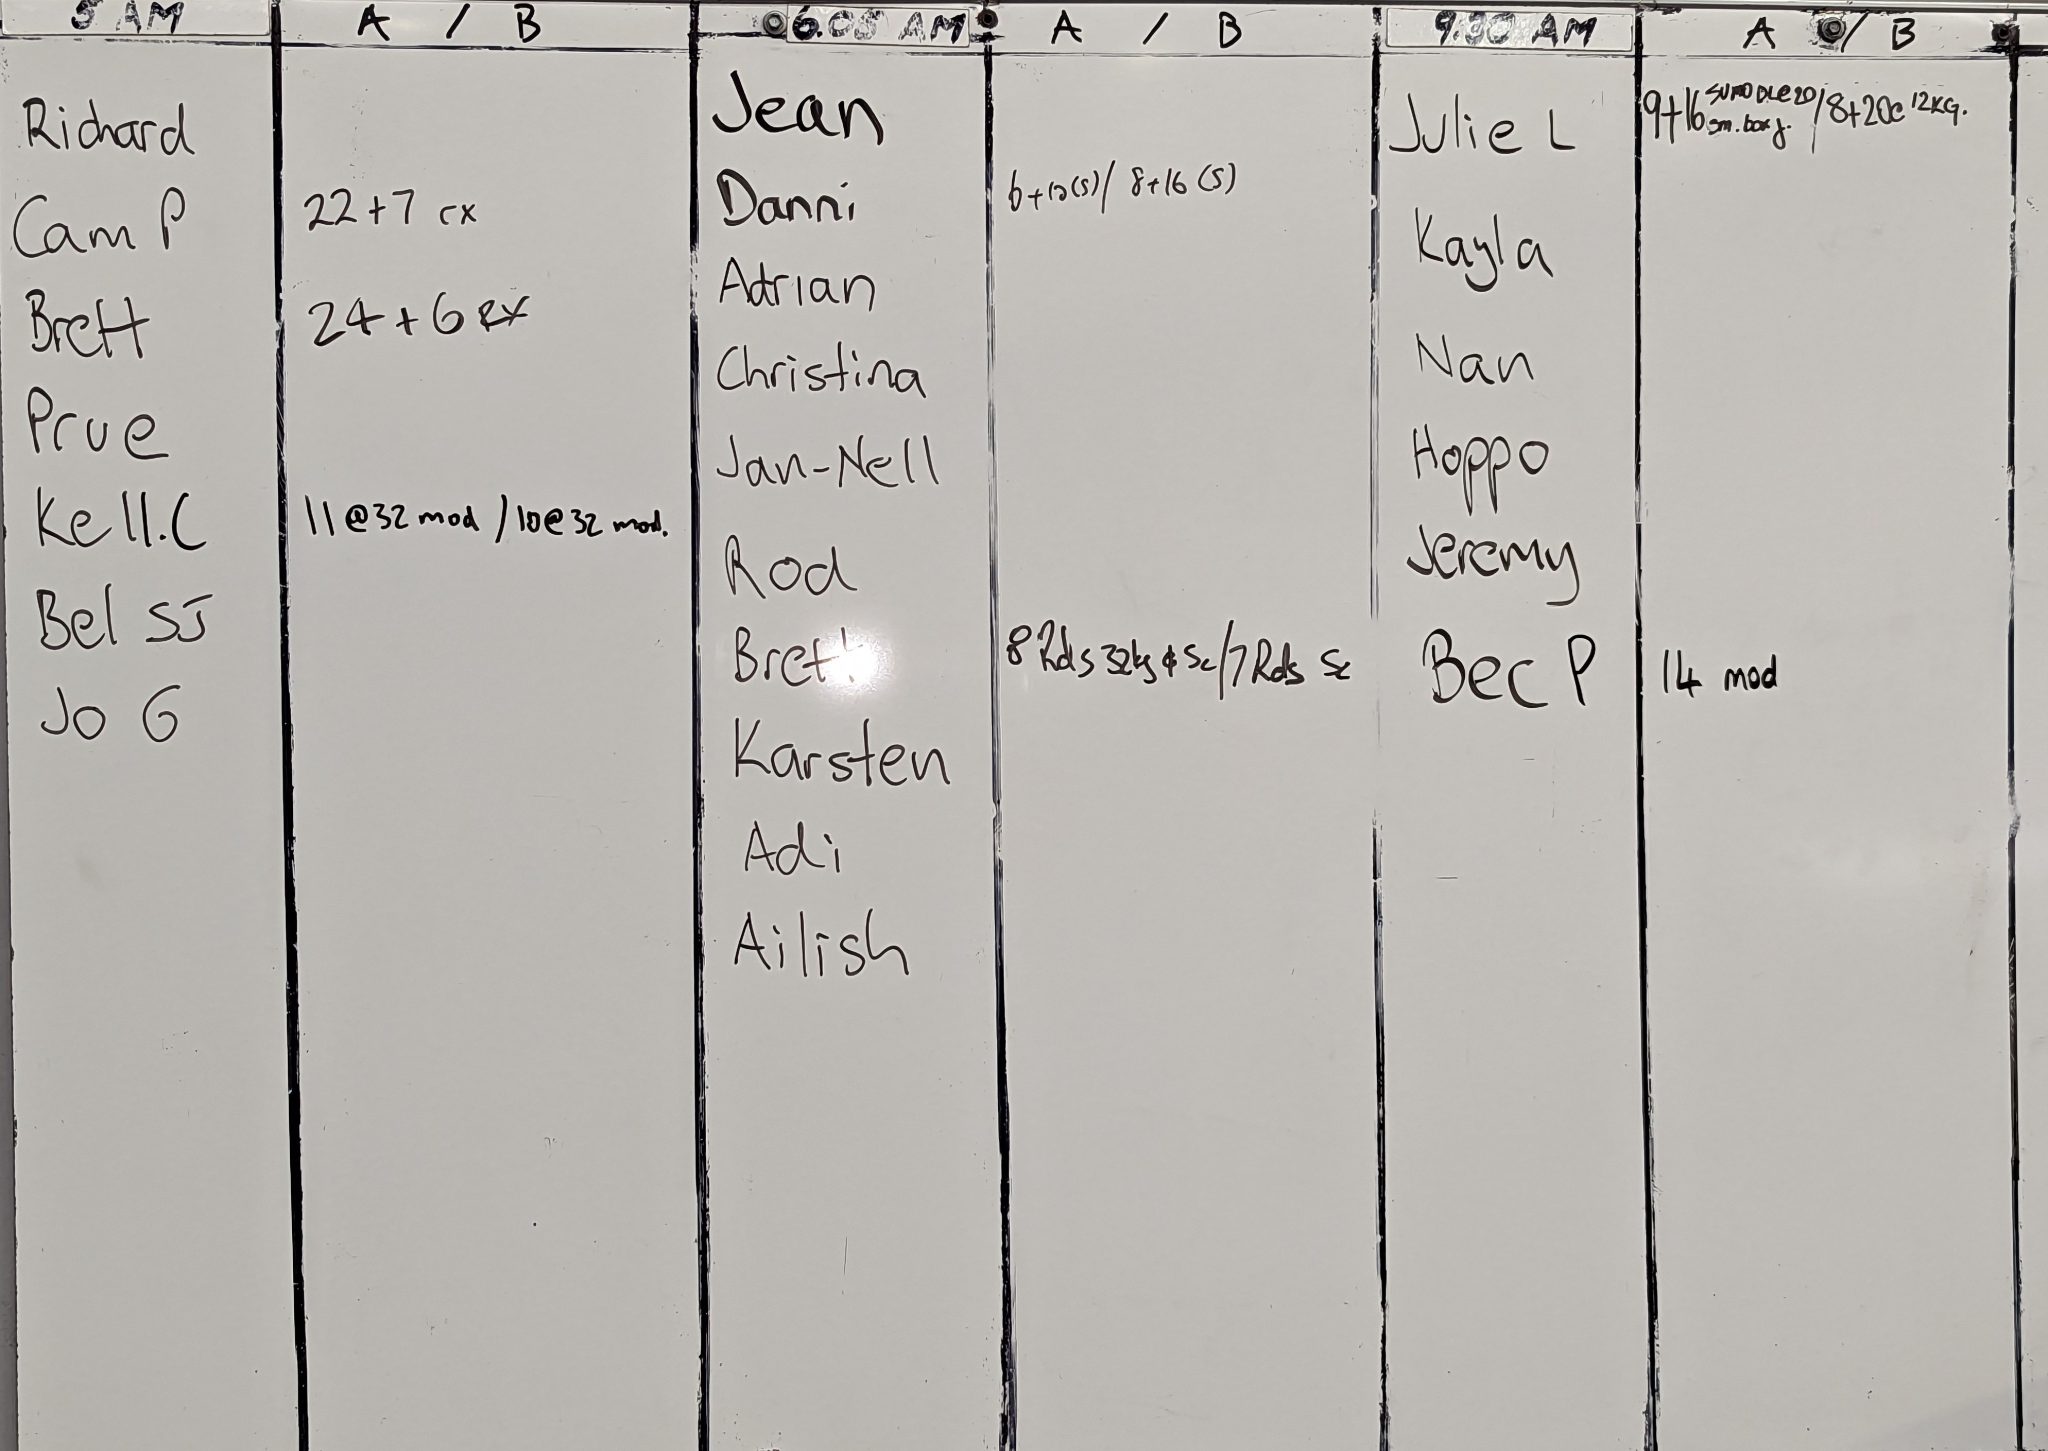 5 AM A / B 6.05 AM A / B 9.30 AM A / B
Richard
Cam P 22+7 rx
Brett 24+6 RX
Prue
Kell.C 11@32 mod / 10@32 mod.
Bel SJ
Jo G
Jean
Danni 6+12(S) / 8+16 (S)
Adrian
Christina
Jan-Nell
Rod
Brett 8 Rds 32kg & Sc / 7 Rds Sc
Karsten
Adi
Ailish
Julie L 9+16 SUMO DL@20 sm. box j. / 8+20@ 12KG.
Kayla
Nan
Hoppo
Jeremy
Bec P 14 mod